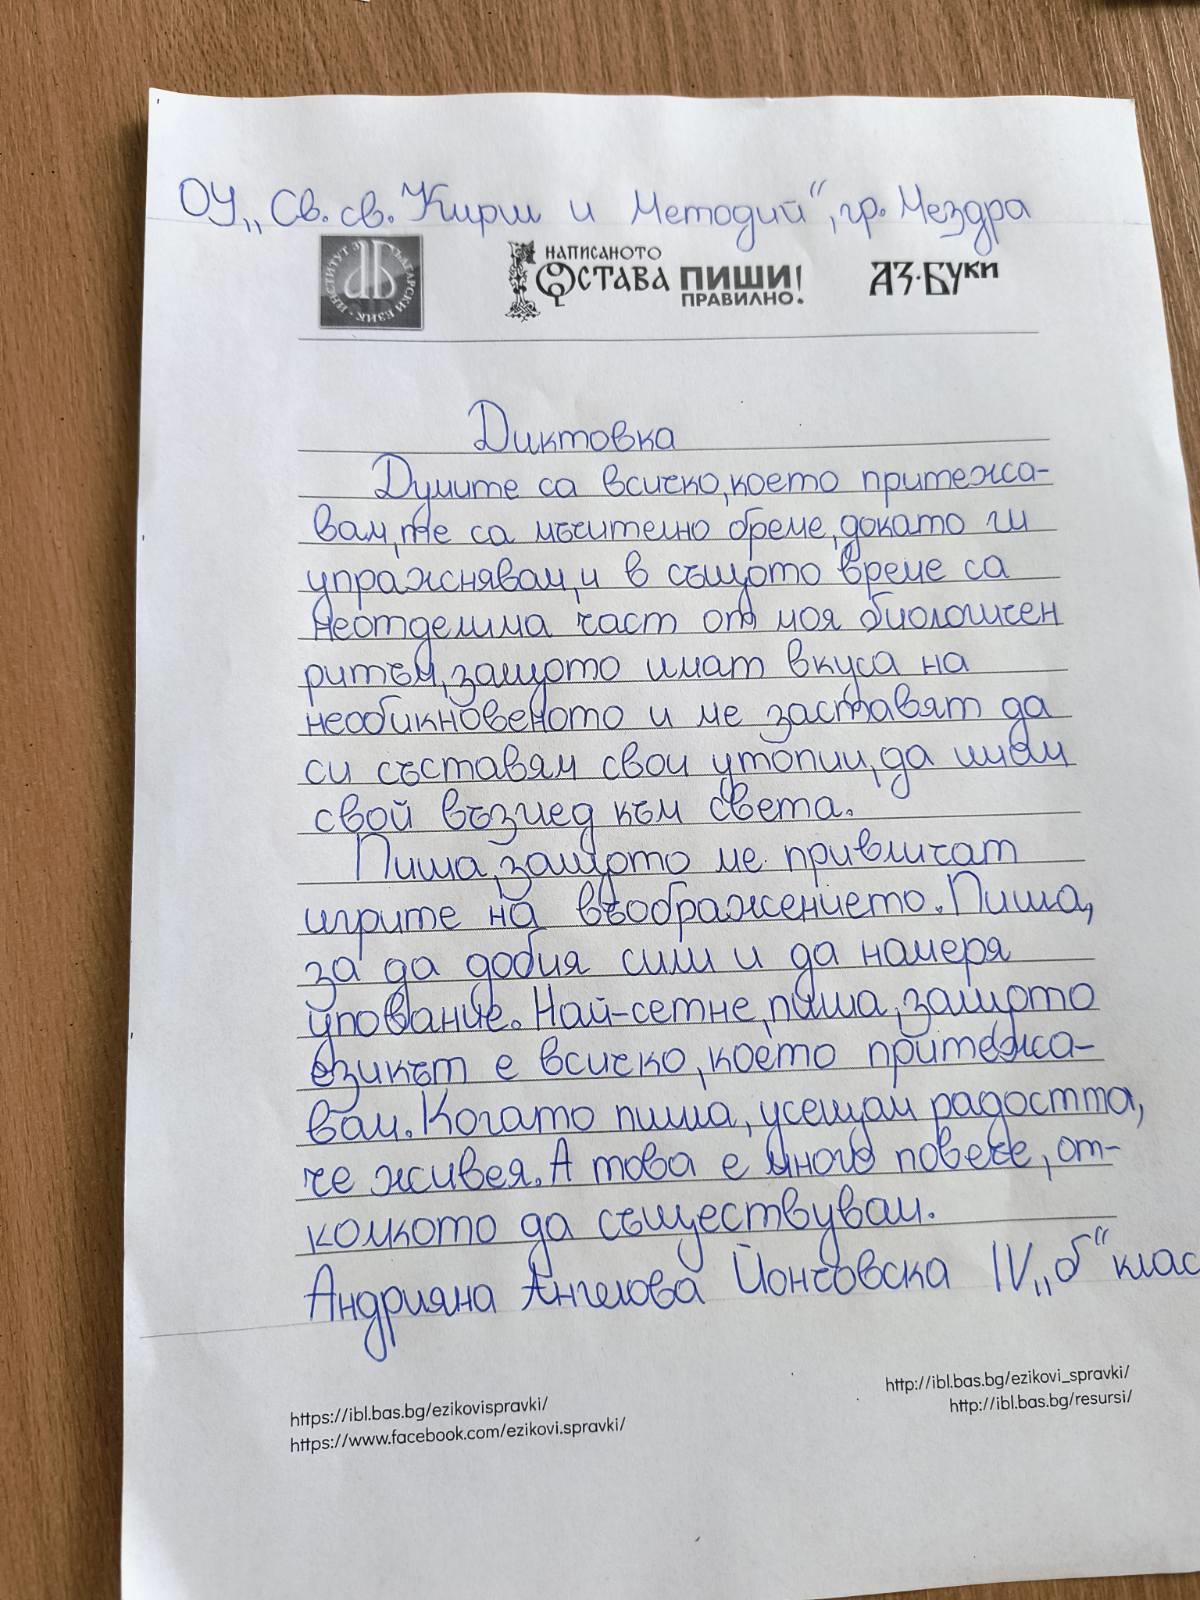 ОУ „Св. св. Кирил и Методий“, гр. Мездра
ИНСТИТУТ ЗА БЪЛГАРСКИ ЕЗИК
НАПИСАНОТО
ОСТАВА ПИШИ!
ПРАВИЛНО.
АЗ·БУКИ
Диктовка
Думите са всичко, което притежа-
вам, те са мъчително бреме, докато ги
упражнявам, и в същото време са
неотделима част от моя биологичен
ритъм, защото имат вкуса на
необикновеното и ме заставят да
си съставям свои утопии, да имам
свой възглед към света.
Пиша, защото ме привличат
игрите на въображението. Пиша,
за да добия сили и да намеря
упование. Най-сетне, пиша, защото
езикът е всичко, което притежа-
вам. Когато пиша, усещам радостта,
че живея. А това е много повече, от-
колкото да съществувам.
Андрияна Ангелова Йончовска IV „б“ клас
https://ibl.bas.bg/ezikovispravki/
https://www.facebook.com/ezikovi.spravki/
http://ibl.bas.bg/ezikovi_spravki/
http://ibl.bas.bg/resursi/